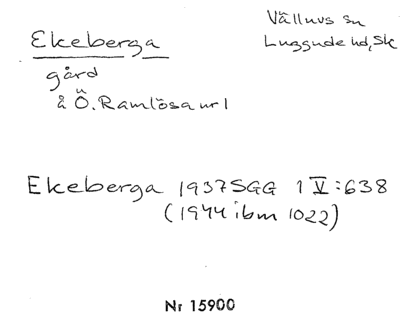 Ekeberga
Välluvs sn
Luggude hd, Sk
gård
å Ö. Ramlösa nr 1
Ekeberga 1937 SGG 1 V:638
(1944 ibm 1022)
Nr 15900